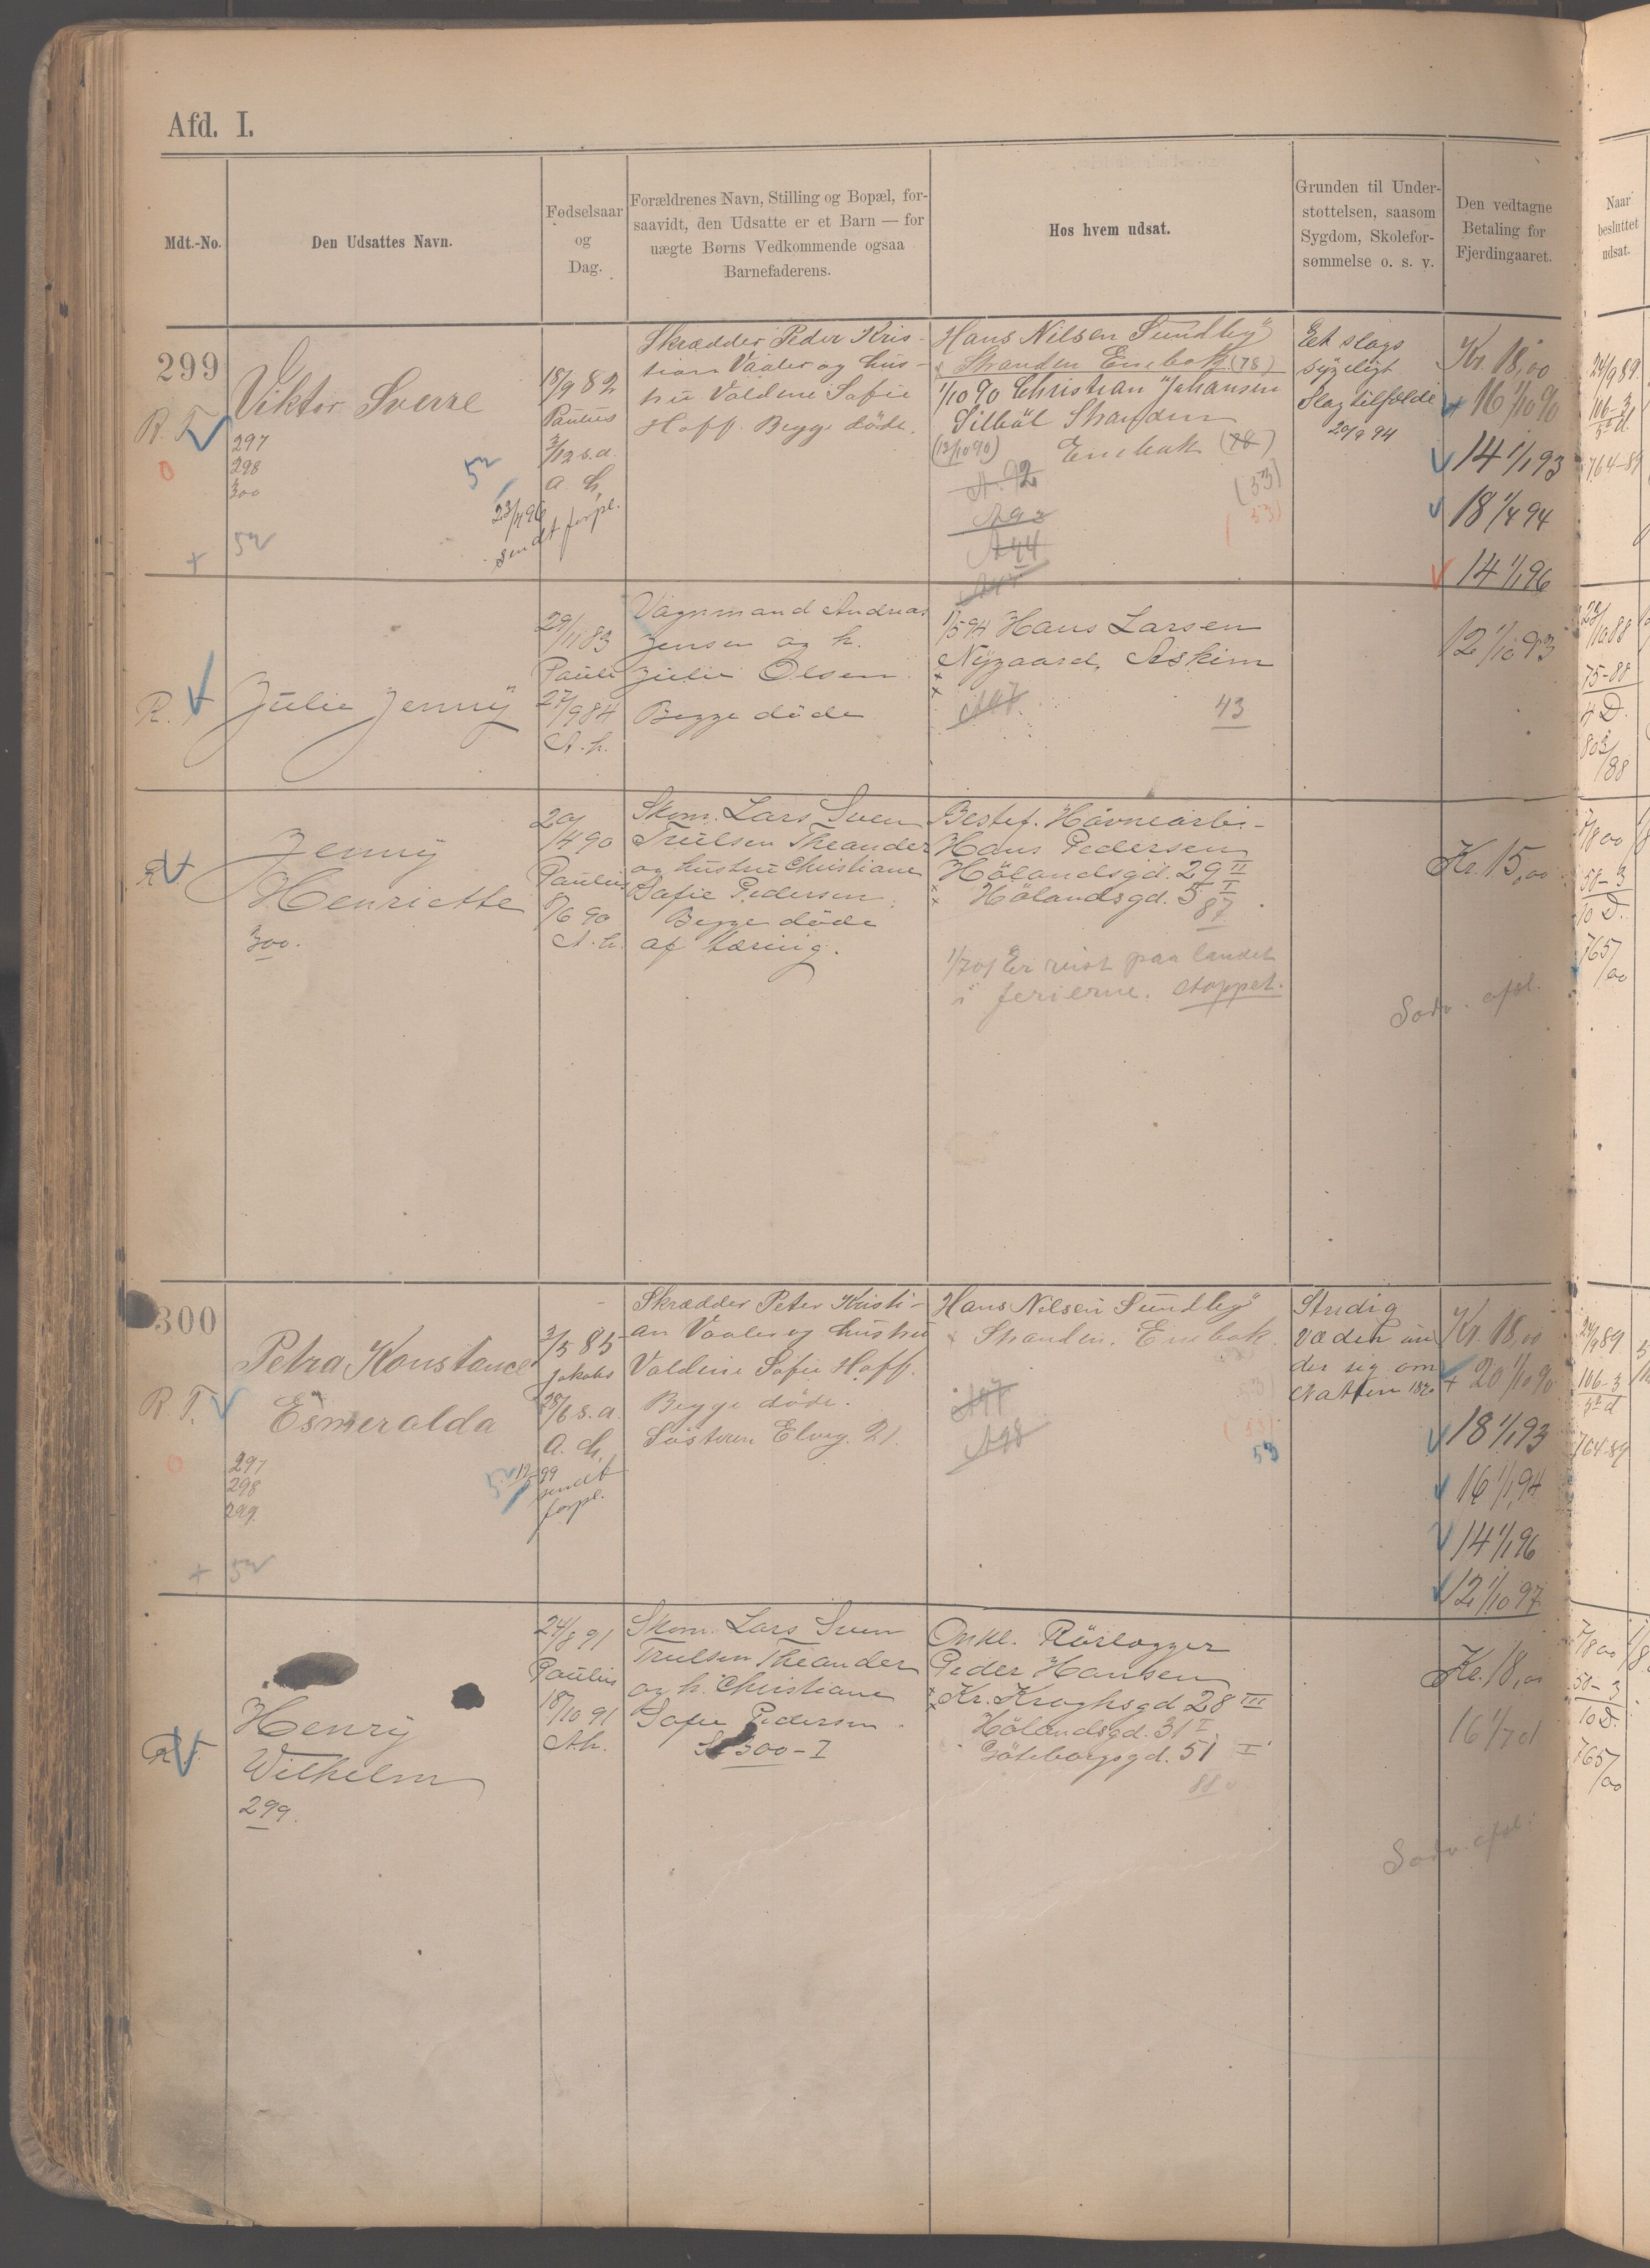 Afd. I.
Mdt.-No.
Den Udsattes Navn.
Fødselsaar
og
Dag.
Forældrenes Navn, Stilling og Bopæl, for-
saavidt, den Udsatte er et Barn — for
uægte Børns Vedkommende ogsaa
Barnefaderens.
Hos hvem udsat.
Grunden til Under-
støttelsen, saasom
Sygdom, Skolefor-
sømmelse o. s. v.
Den vedtagne
Betaling for
Fjerdingaaret.
Naar
besluttet
udsat.
299
R. T.
Viktor Sverre
297
298
300
52
52
18/9 82
Paulus
3/12 s.a.
a. h.
23/4 96
sendt forpl.
Skrædder Peder Kris-
tian Vaaler og hus-
tru Valdine Sofie
Hoff. Begge døde.
Hans Nilsen Sundby
Stranden Enebak (78)
1/10 90 Christian Johansen
Silböl Stranden
(13/10 90) Enebak (78)
A. 92
(53)
A 93
(53)
A 94
A 95
Et slags
sygeligt
Slagtilfælde
20/9 94
Kr. 18,00
+ 16 1/10 90
14 1/1 93
18 1/4 94
14 1/1 96
24/9 89
106-3
5te d.
764-89
R.
Julie Jenny
29/11 83
Pauli
27/9 84
A. h.
Vognmand Andreas
Jensen og h.
Julie Olsen
Begge døde
1/5 94 Hans Larsen
Nygaard, Askim
A 97
43
12 1/10 93
75-88
4 D.
803/88
R.
Jenny
Henriette
300.
20/4 90
Paulus
8/6 90
A. h.
Skom. Lars Sven
Trulsen Theander
og hustru Christiane
Sofie Pedersen.
Begge døde
af tæring.
Bestef. Havnearbei-
Hans Pedersen
Hölandsgd. 29 II
Hölandsgd. 5 I
87
1/7 01 Er reist paa landet
i ferierne. stoppet.
Kr. 15,00
Sodv. afsl.
7/8 00
50-3
10 D.
765/00
300
R. T.
Petra Konstance
Esmeralda
297
298
299
52
52
3/5 85
Jakobs
28/6 s.a.
a. h.
12/5 99
sendt
forpl.
Skrædder Peter Kristi-
an Vaaler og hustru
Valdine Sofie Hoff.
Begge døde.
Søsteren Elveg. 21.
Hans Nilsen Sundby
Stranden. Enebak.
A 97
(53)
A 98
53
Stadig
væden un
der sig om
Natten
Kr. 18,00
+ 20 1/10 90
18 1/1 93
16 1/1 94
14 1/1 96
12 1/10 97
24/9 89
106-3
5te d
764-89
R.
Henry
Wilhelm
299.
24/8 91
Paulus
18/10 91
A.h.
Skom. Lars Sven
Trulsen Theander
og h. Christiane
Sofie Pedersen.
300-I
Onkl. Rörlægger
Peder Hansen
Kr. Kroghsgd 28 III
Hölandsgd. 31 I
Göteborgsgd. 51 I
88
Kr. 18,00
16 1/7 01
Sodv. afsl.
7/8 00
50-3
10 D.
765/00